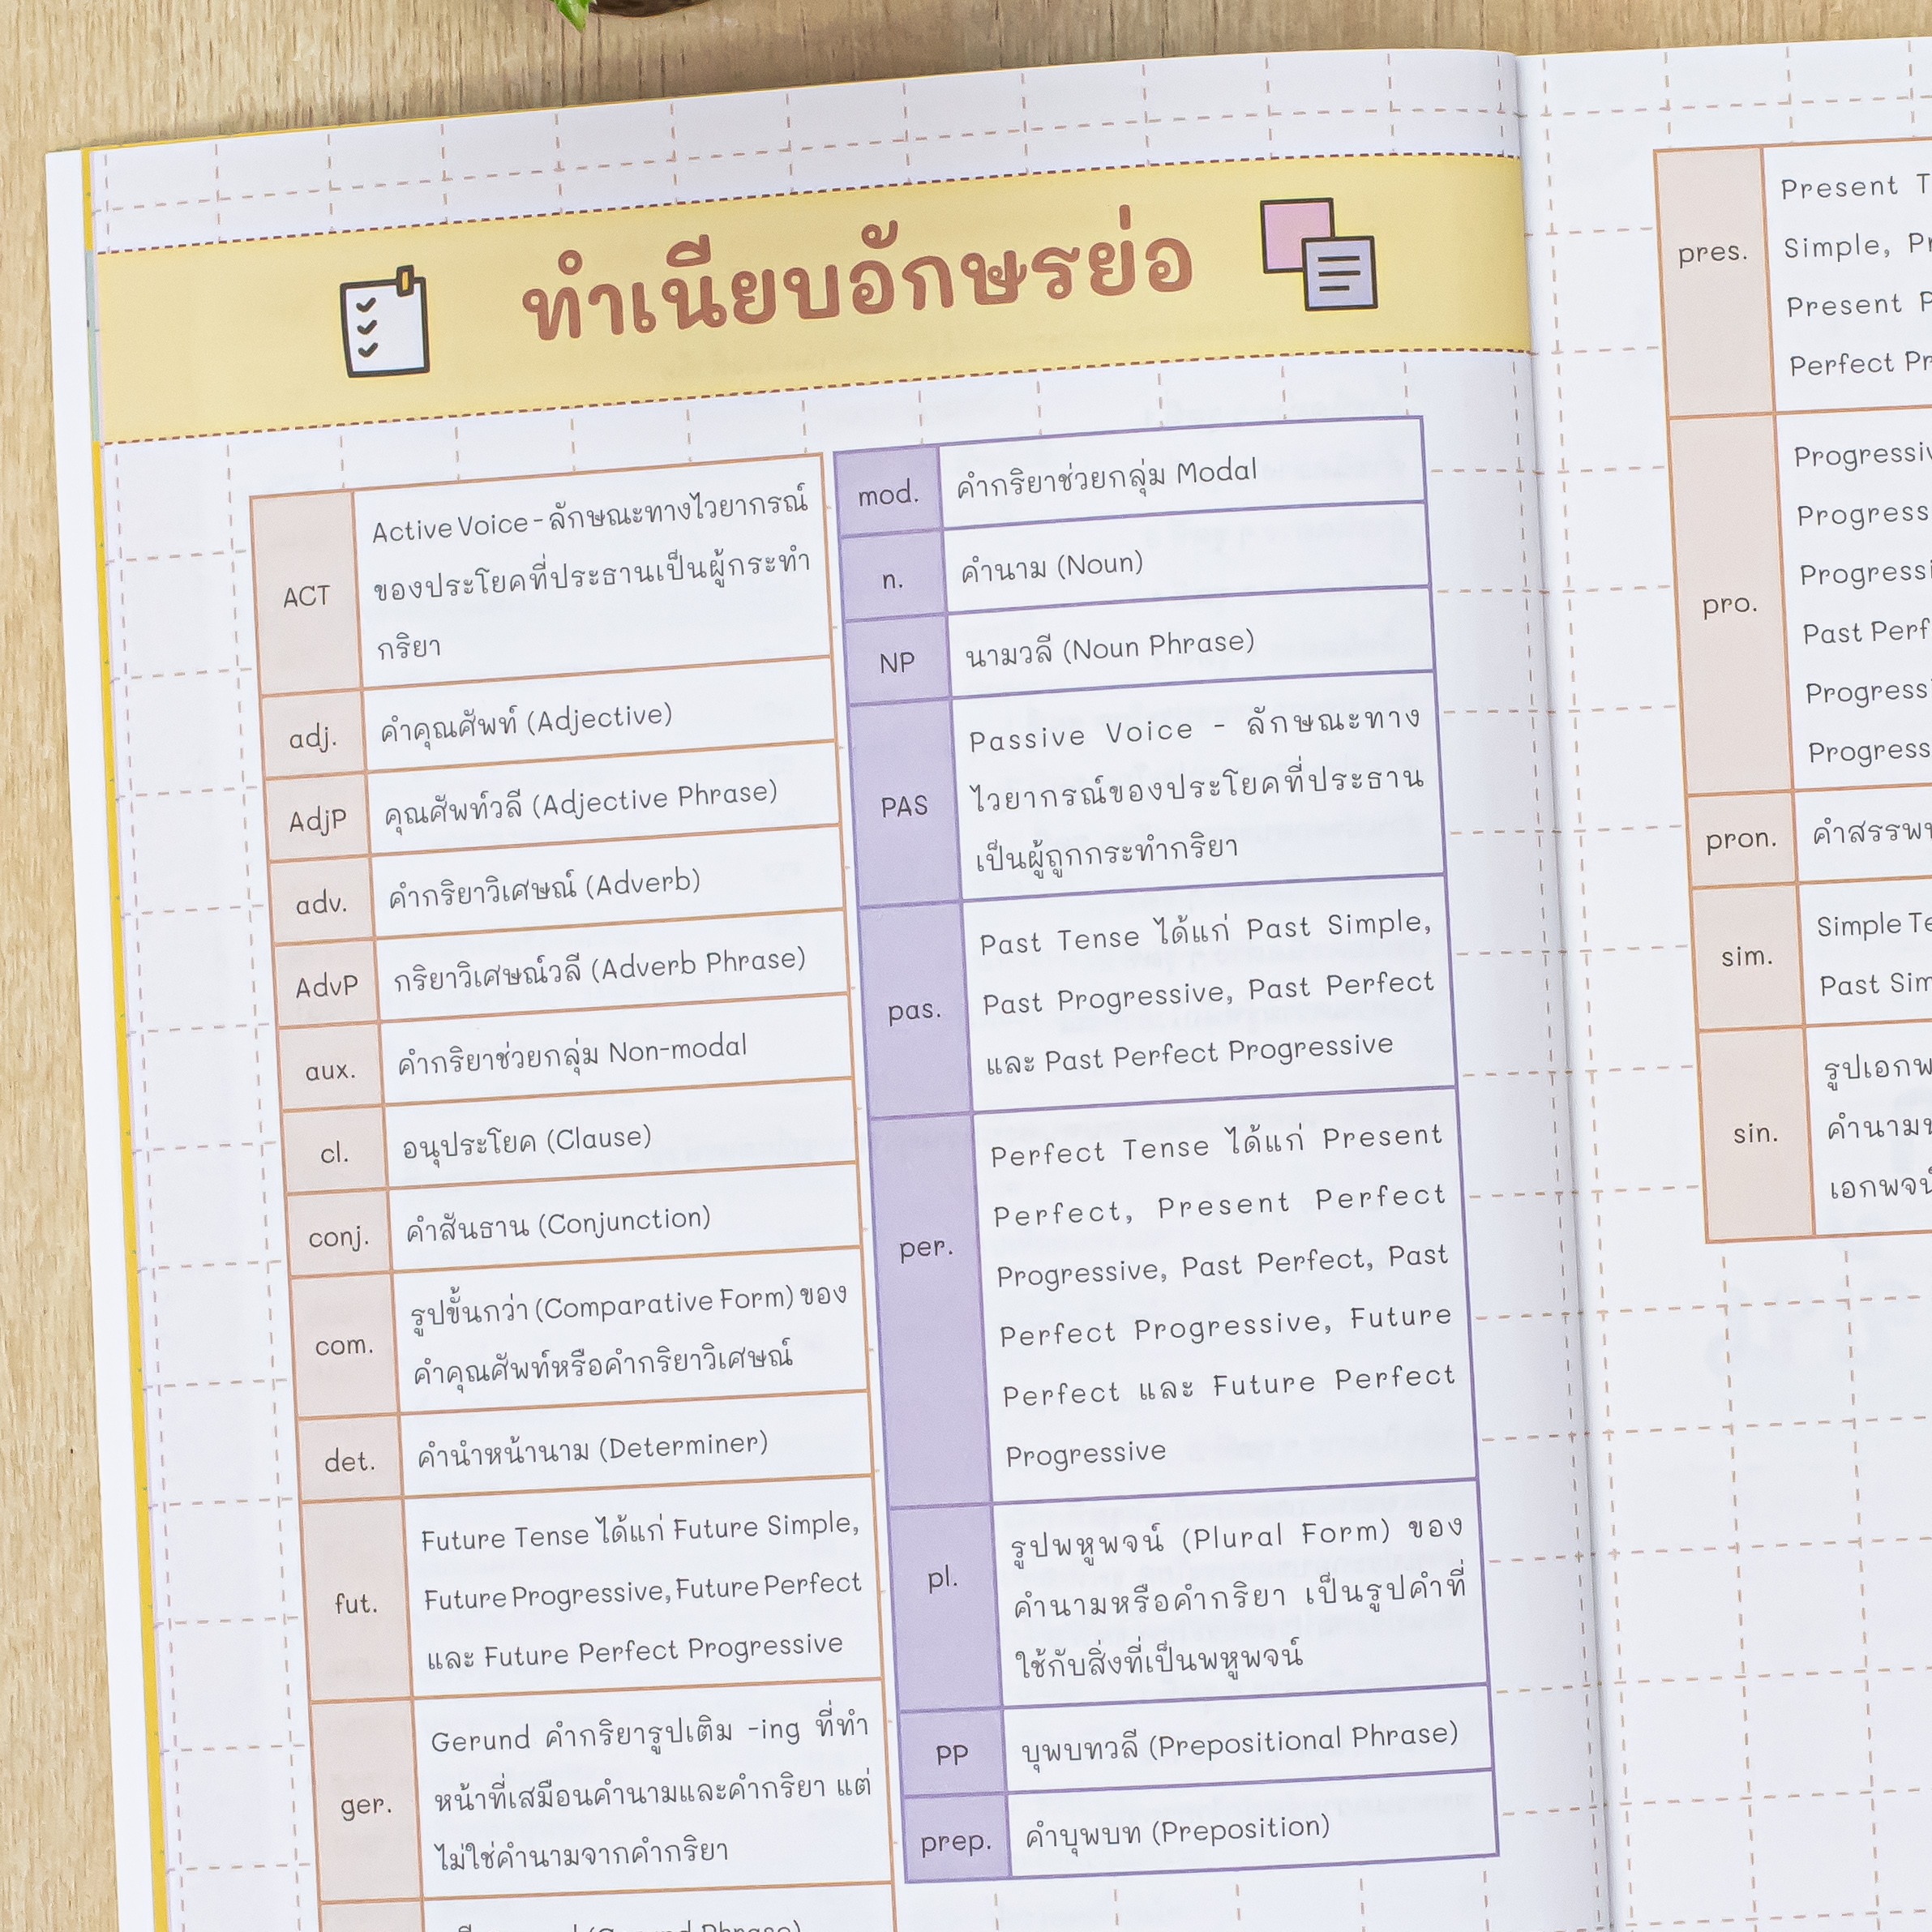 ทำเนียบอักษรย่อ
ACT
Active Voice - ลักษณะทางไวยากรณ์
ของประโยคที่ประธานเป็นผู้กระทำ
กริยา
adj.
คำคุณศัพท์ (Adjective)
AdjP
คุณศัพท์วลี (Adjective Phrase)
adv.
คำกริยาวิเศษณ์ (Adverb)
AdvP
กริยาวิเศษณ์วลี (Adverb Phrase)
aux.
คำกริยาช่วยกลุ่ม Non-modal
cl.
อนุประโยค (Clause)
conj.
คำสันธาน (Conjunction)
com.
รูปขั้นกว่า (Comparative Form) ของ
คำคุณศัพท์หรือคำกริยาวิเศษณ์
det.
คำนำหน้านาม (Determiner)
fut.
Future Tense ได้แก่ Future Simple,
Future Progressive, Future Perfect
และ Future Perfect Progressive
ger.
Gerund คำกริยารูปเติม -ing ที่ทำ
หน้าที่เสมือนคำนามและคำกริยา แต่
ไม่ใช่คำนามจากคำกริยา
mod.
คำกริยาช่วยกลุ่ม Modal
n.
คำนาม (Noun)
NP
นามวลี (Noun Phrase)
PAS
Passive Voice - ลักษณะทาง
ไวยากรณ์ของประโยคที่ประธาน
เป็นผู้ถูกกระทำกริยา
pas.
Past Tense ได้แก่ Past Simple,
Past Progressive, Past Perfect
และ Past Perfect Progressive
per.
Perfect Tense ได้แก่ Present
Perfect, Present Perfect
Progressive, Past Perfect, Past
Perfect Progressive, Future
Perfect และ Future Perfect
Progressive
pl.
รูปพหูพจน์ (Plural Form) ของ
คำนามหรือคำกริยา เป็นรูปคำที่
ใช้กับสิ่งที่เป็นพหูพจน์
PP
บุพบทวลี (Prepositional Phrase)
prep.
คำบุพบท (Preposition)
pres.
Present
Simple,
Present
Perfect
pro.
Past
pron.
sim.
Simple
Past
sin.